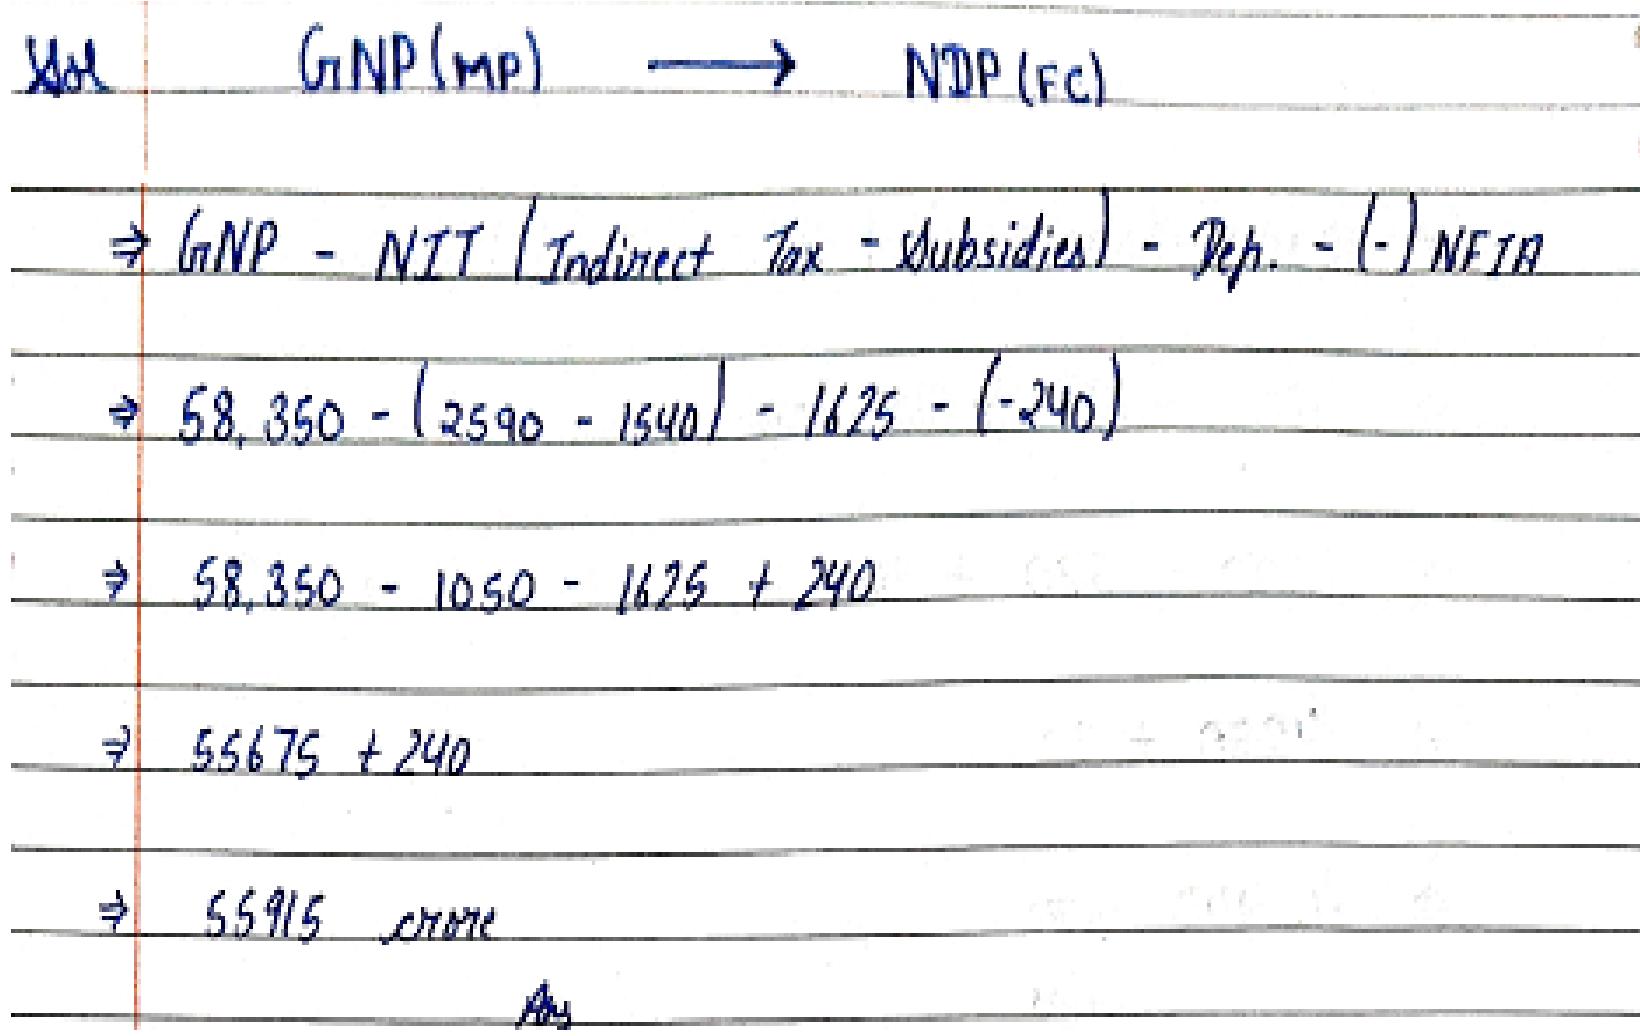 Sol GNP(MP) → NDP(FC)
⇒ GNP - NIT (Indirect Tax - Subsidies) - Dep. - (-) NFIA
⇒ 58,350 - (2590 - 1540) - 1625 - (-240)
⇒ 58,350 - 1050 - 1625 + 240
⇒ 55675 + 240
⇒ 55915 crore
Ans